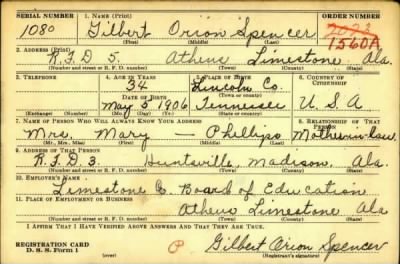 SERIAL NUMBER 1. NAME (Print) ORDER NUMBER
1080 Gilbert Orion Spencer 1560A
(First) (Middle) (Last)
2. ADDRESS (Print)
R.F.D 5. Athens Limestone Ala.
(Number and street or R. F. D. number) (Town) (County) (State)
3. TELEPHONE 4. AGE IN YEARS 5. PLACE OF BIRTH 6. COUNTRY OF CITIZENSHIP
34 Lincoln Co.
DATE OF BIRTH (Town or county)
May 5 1906 Tennessee U.S.A
(Exchange) (Number) (Mo.) (Day) (Yr.) (State or country)
7. NAME OF PERSON WHO WILL ALWAYS KNOW YOUR ADDRESS 8. RELATIONSHIP OF THAT PERSON
Mrs. Mary — Phillips Mother-in-law
(Mr., Mrs., Miss) (First) (Middle) (Last)
9. ADDRESS OF THAT PERSON
R.F.D. 3. Huntsville, Madison, Ala.
(Number and street or R. F. D. number) (Town) (County) (State)
10. EMPLOYER'S NAME
Limestone Co. Board of Education
11. PLACE OF EMPLOYMENT OR BUSINESS
Athens Limestone Ala
(Number and street or R. F. D. number) (Town) (County) (State)
I AFFIRM THAT I HAVE VERIFIED ABOVE ANSWERS AND THAT THEY ARE TRUE.
REGISTRATION CARD P Gilbert Orion Spencer
D. S. S. Form 1 (over) (Registrant's signature)